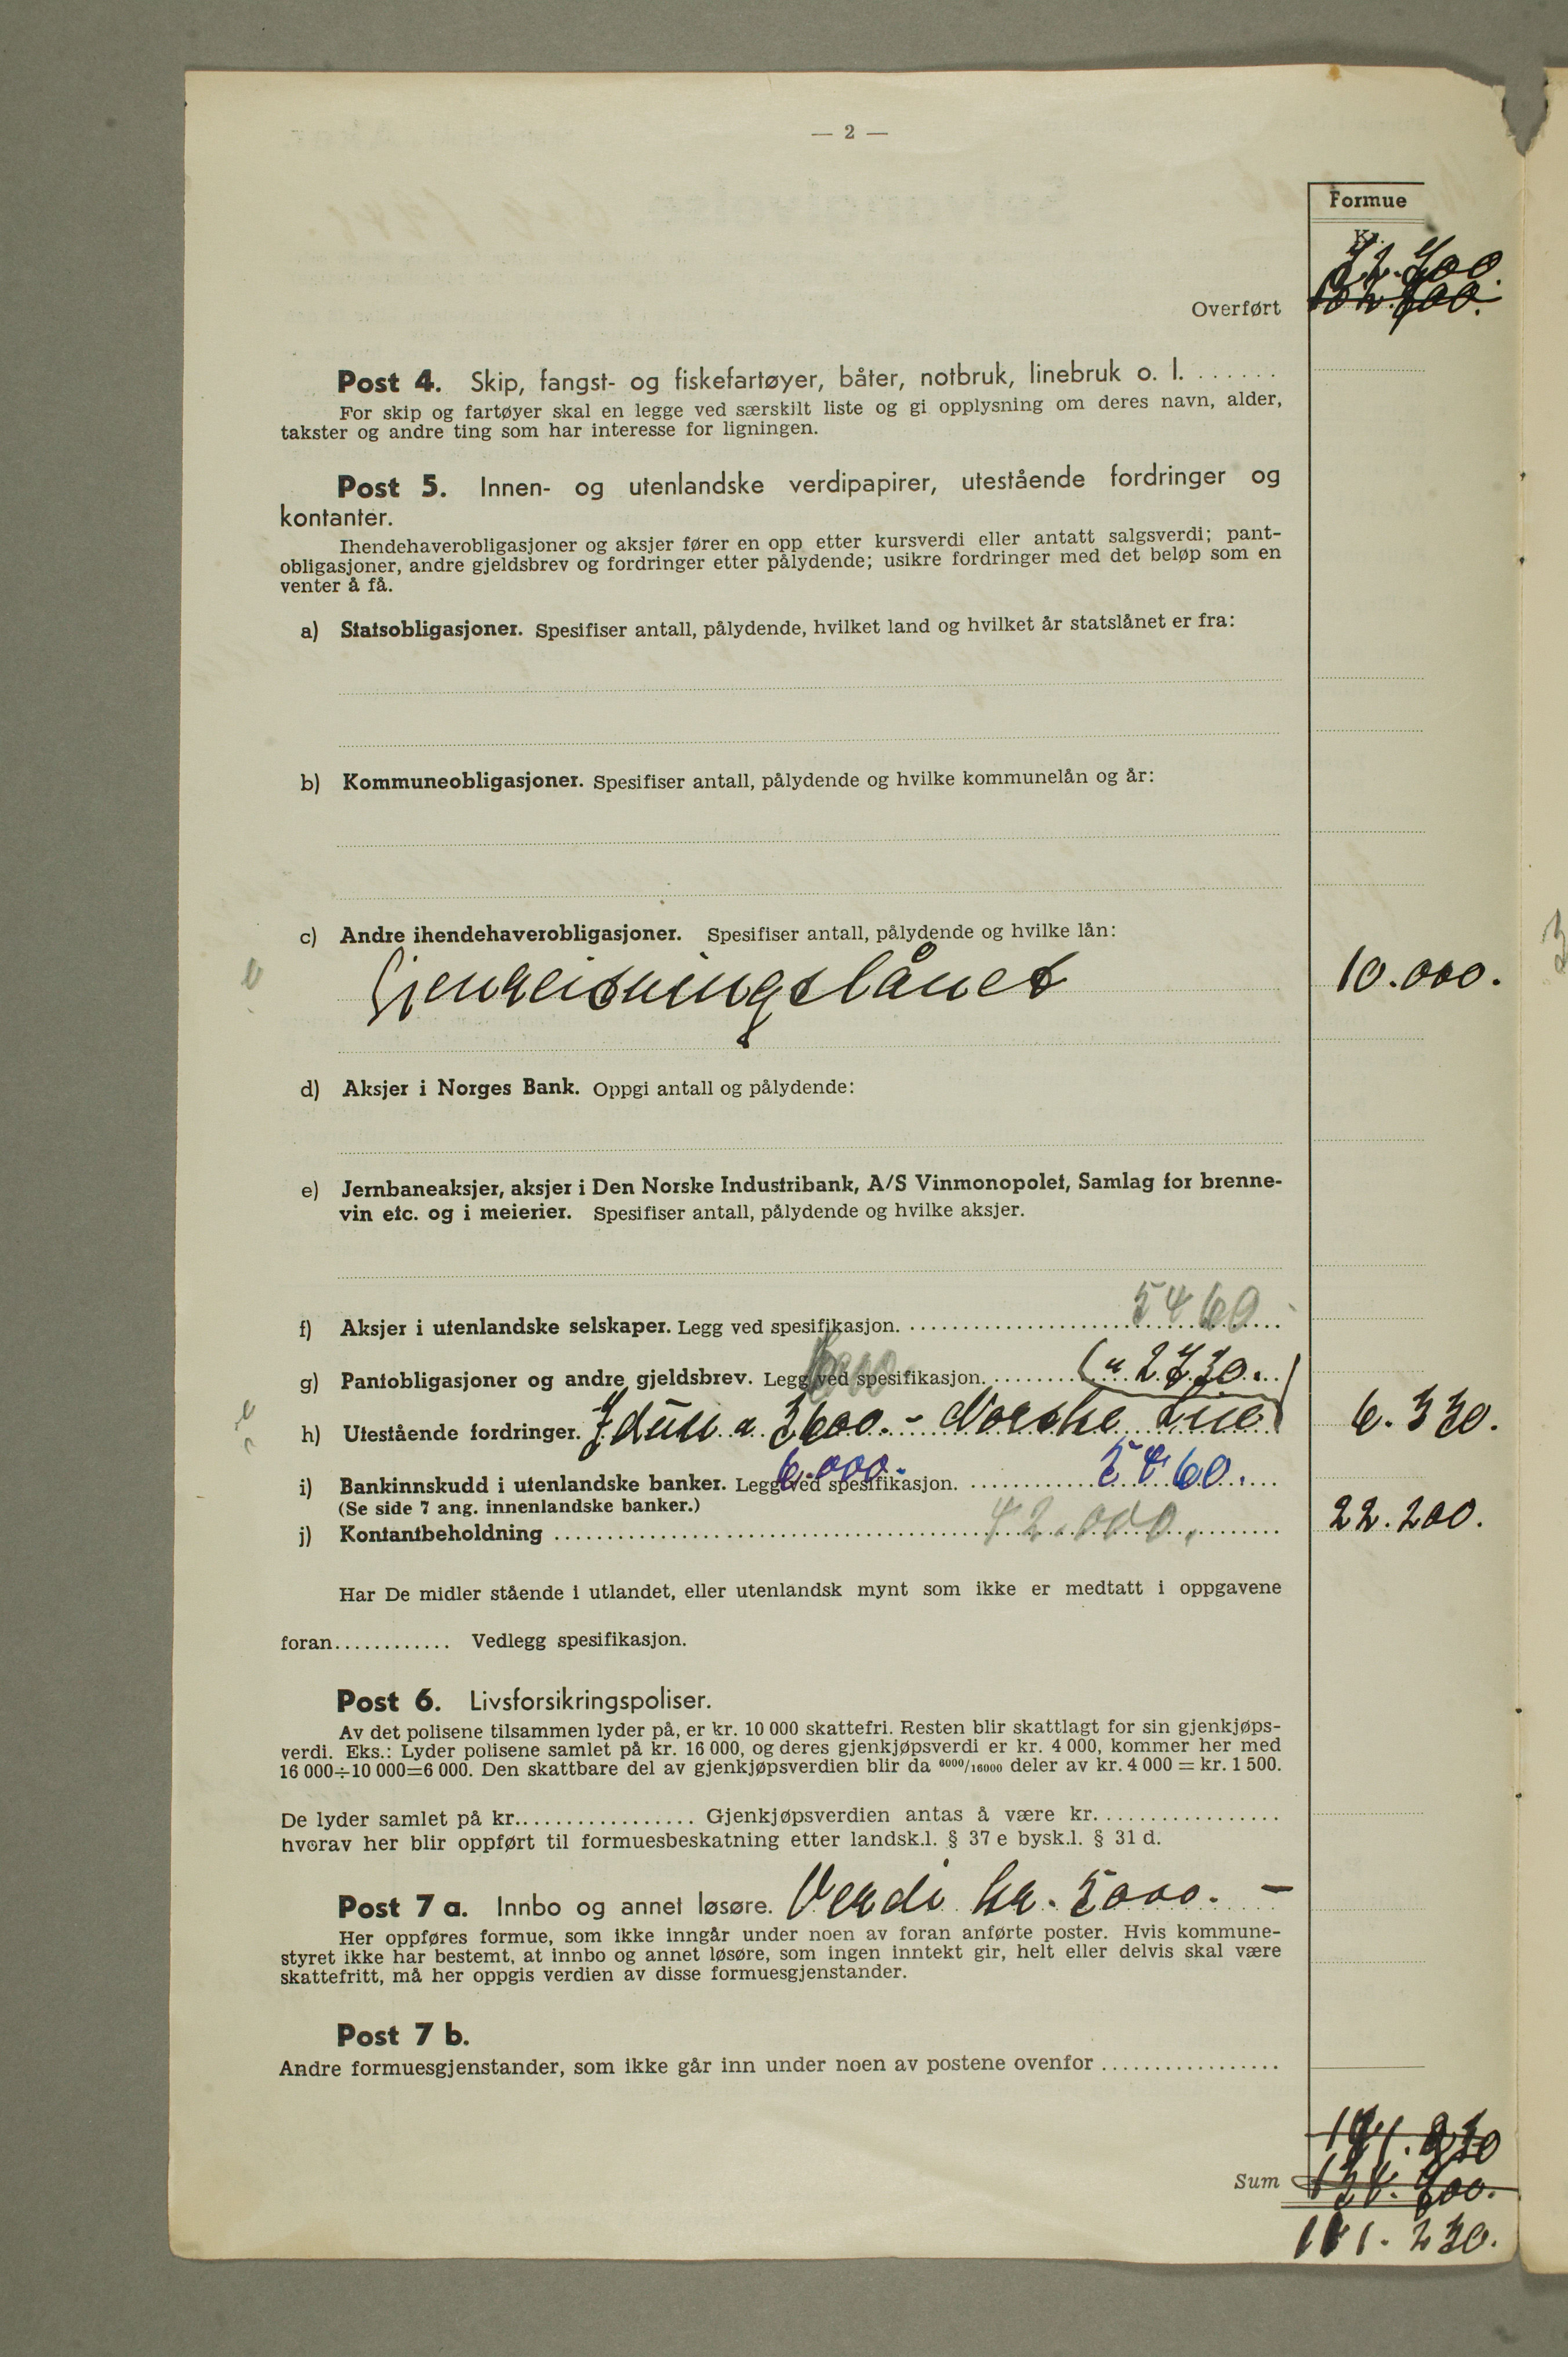 — 2 —
Formue
Kr.
72.700.
Overført
Post 4. Skip, fangst- og fiskefartøyer, båter, notbruk, linebruk o. l. . . . . . .
For skip og fartøyer skal en legge ved særskilt liste og gi opplysning om deres navn, alder,
takster og andre ting som har interesse for ligningen.
Post 5. Innen- og utenlandske verdipapirer, utestående fordringer og
kontanter.
Ihendehaverobligasjoner og aksjer fører en opp etter kursverdi eller antatt salgsverdi; pant-
obligasjoner, andre gjeldsbrev og fordringer etter pålydende; usikre fordringer med det beløp som en
venter å få.
a) Statsobligasjoner. Spesifiser antall, pålydende, hvilket land og hvilket år statslånet er fra:
b) Kommuneobligasjoner. Spesifiser antall, pålydende og hvilke kommunelån og år:
c) Andre ihendehaverobligasjoner. Spesifiser antall, pålydende og hvilke lån:
Gjenreisningslånet 10.000.
d) Aksjer i Norges Bank. Oppgi antall og pålydende:
e) Jernbaneaksjer, aksjer i Den Norske Industribank, A/S Vinmonopolet, Samlag for brenne-
vin etc. og i meierier. Spesifiser antall, pålydende og hvilke aksjer.
5460
f) Aksjer i utenlandske selskaper. Legg ved spesifikasjon. . . . . . . . . . . . . . . . . . .
g) Pantobligasjoner og andre gjeldsbrev. Legg ved spesifikasjon. . . . . . . . . (a 2730.
h) Utestående fordringer. Idun a 3600. - Norske Live 6.330.
6.000. 5460.
i) Bankinnskudd i utenlandske banker. Legg ved spesifikasjon. . . . . . . . . . . . . . .
(Se side 7 ang. innenlandske banker.)
j) Kontantbeholdning . . . . . . . . . . . . . . . . . . . . 42.000. 22.200.
Har De midler stående i utlandet, eller utenlandsk mynt som ikke er medtatt i oppgavene
foran. . . . . . . . . . . . Vedlegg spesifikasjon.
Post 6. Livsforsikringspoliser.
Av det polisene tilsammen lyder på, er kr. 10 000 skattefri. Resten blir skattlagt for sin gjenkjøps-
verdi. Eks.: Lyder polisene samlet på kr. 16 000, og deres gjenkjøpsverdi er kr. 4 000, kommer her med
16 000÷10 000=6 000. Den skattbare del av gjenkjøpsverdien blir da 6000/16000 deler av kr. 4 000 = kr. 1 500.
De lyder samlet på kr. . . . . . . . . . . . . . . . . Gjenkjøpsverdien antas å være kr. . . . . . . . . . . . . . . . . .
hvorav her blir oppført til formuesbeskatning etter landsk.l. § 37 e bysk.l. § 31 d.
Post 7 a. Innbo og annet løsøre. Verdi kr. 5000. -
Her oppføres formue, som ikke inngår under noen av foran anførte poster. Hvis kommune-
styret ikke har bestemt, at innbo og annet løsøre, som ingen inntekt gir, helt eller delvis skal være
skattefritt, må her oppgis verdien av disse formuesgjenstander.
Post 7 b.
Andre formuesgjenstander, som ikke går inn under noen av postene ovenfor . . . . . . . . . . . . . . . . .
Sum
111.230.